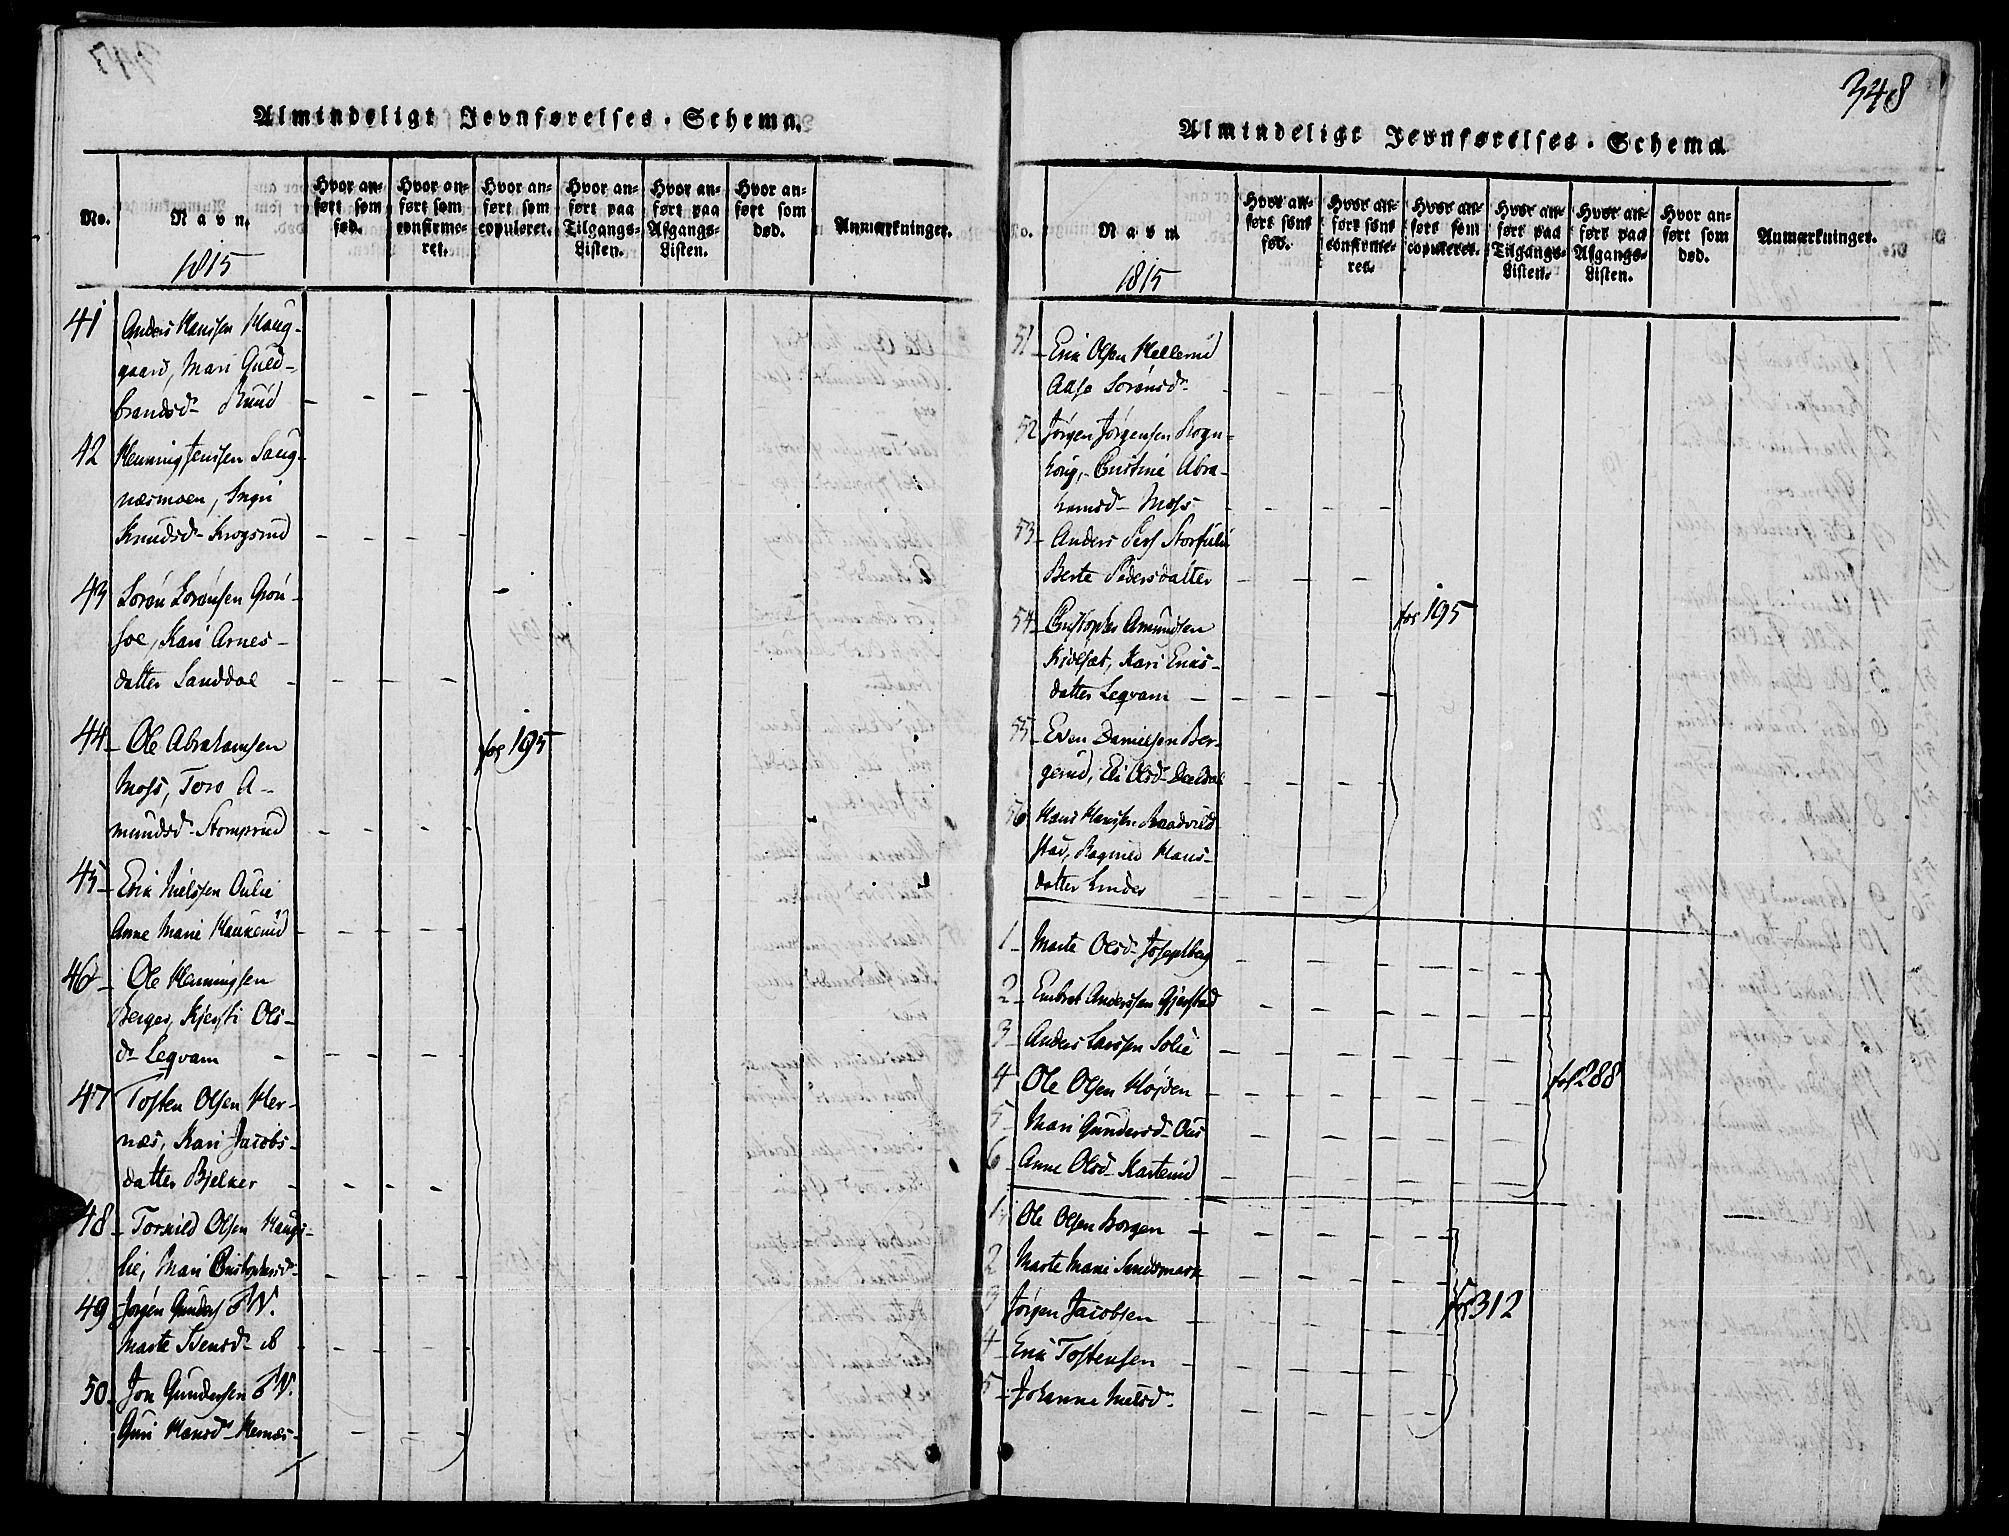 Almindeligt Jevnførelses-Schema.
No.
Navn.
Hvor an-
ført som
fød.
Hvor an-
ført som
confirme-
ret.
Hvor an-
ført som
copuleret.
Hvor an-
ført paa
Tilgangs-
Listen.
Hvor an-
ført paa
Afgangs-
Listen.
Hvor an-
ført som
død.
Anmærkninger.
1815
41 Anders Hanssen Haug-
gaard, Mari Guld-
brandsd. Ruud
42 Henning Jenssen Haug-
næsmoen, Ingri
Knudsd. Krogsrud
43 Søren Sørensen Grøn-
soe, Kari Arnes-
datter Sanddal
44 Ole Abrahamsen
Moss, Toro A-
mundsd. Stomprud
fol 195
45 Erik Nielssen Oulie
Anne Marie Haukerud
46 Ole Henningsen
Berger, Kjersti Ols-
d. Leqvam
47 Tosten Olsen Her-
næs, Kari Jacobs-
datter Bjelker
48 Torkild Olsen Haugs-
lie, Mari Christophersd.
49 Jørgen Gunders. F.W.
Marte Iversd. ib
50 Jon Gundersen F.W.
Guri Hansd. Hernæs
348
Almindeligt Jevnførelses-Schema
No.
Navn
Hvor an-
ført som
fød.
Hvor an-
ført som
confirme-
ret.
Hvor an-
ført som
copuleret.
Hvor an-
ført paa
Tilgangs-
Listen.
Hvor an-
ført paa
Afgangs-
Listen.
Hvor an-
ført som
død.
Anmærkninger.
1815
51 Erik Olsen Hellerud
Aase Sørensd.
52 Jørgen Jørgensen Rogn-
houg, Cristine Abra-
hamsd. Moss
53 Anders Pers. Storfulie
Berte Pedersdatter
54 Christopher Amundsen
Kidlsæt, Kari Eriks-
datter Leqvam
fol 195
55 Even Danielsen Ber-
gerud, Eli Olsd. Dældal
56 Hans Hanssen Raadvild
stad, Ragnild Hans-
datter Linder
1 Marte Olsd. Josephberg
2 Embret Anderssen Gjerstad
3 Anders Larssen Solie
4 Ole Olsen Høyden
fol 288
5 Mari Gundersd. Ous
6 Anne Olsd. Karterud
1 Ole Olsen Borgen
2 Marte Marie Sandsmark
3 Jørgen Jacobsen
fol 312
4 Erik Tostensen
5 Johanne Nielsd.